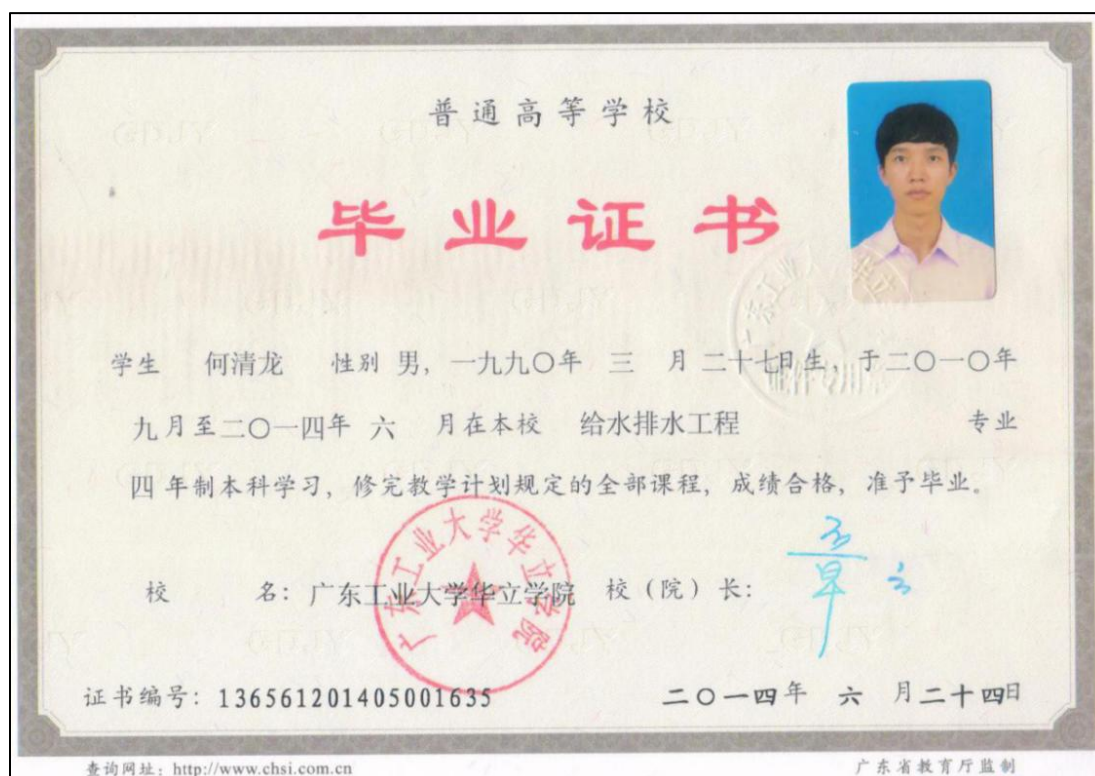 普通高等学校
毕业证书
学生 何清龙 性别 男，一九九〇年 三 月 二十七日生，于二〇一〇年
九月至二〇一四年 六 月在本校 给水排水工程 专业
四 年制本科学习，修完教学计划规定的全部课程，成绩合格，准予毕业。
校 名：广东工业大学华立学院 校（院）长：
广东工业大学华立学院
证书编号：136561201405001635 二〇一四年 六 月二十四日
查询网址：http://www.chsi.com.cn 广东省教育厅监制